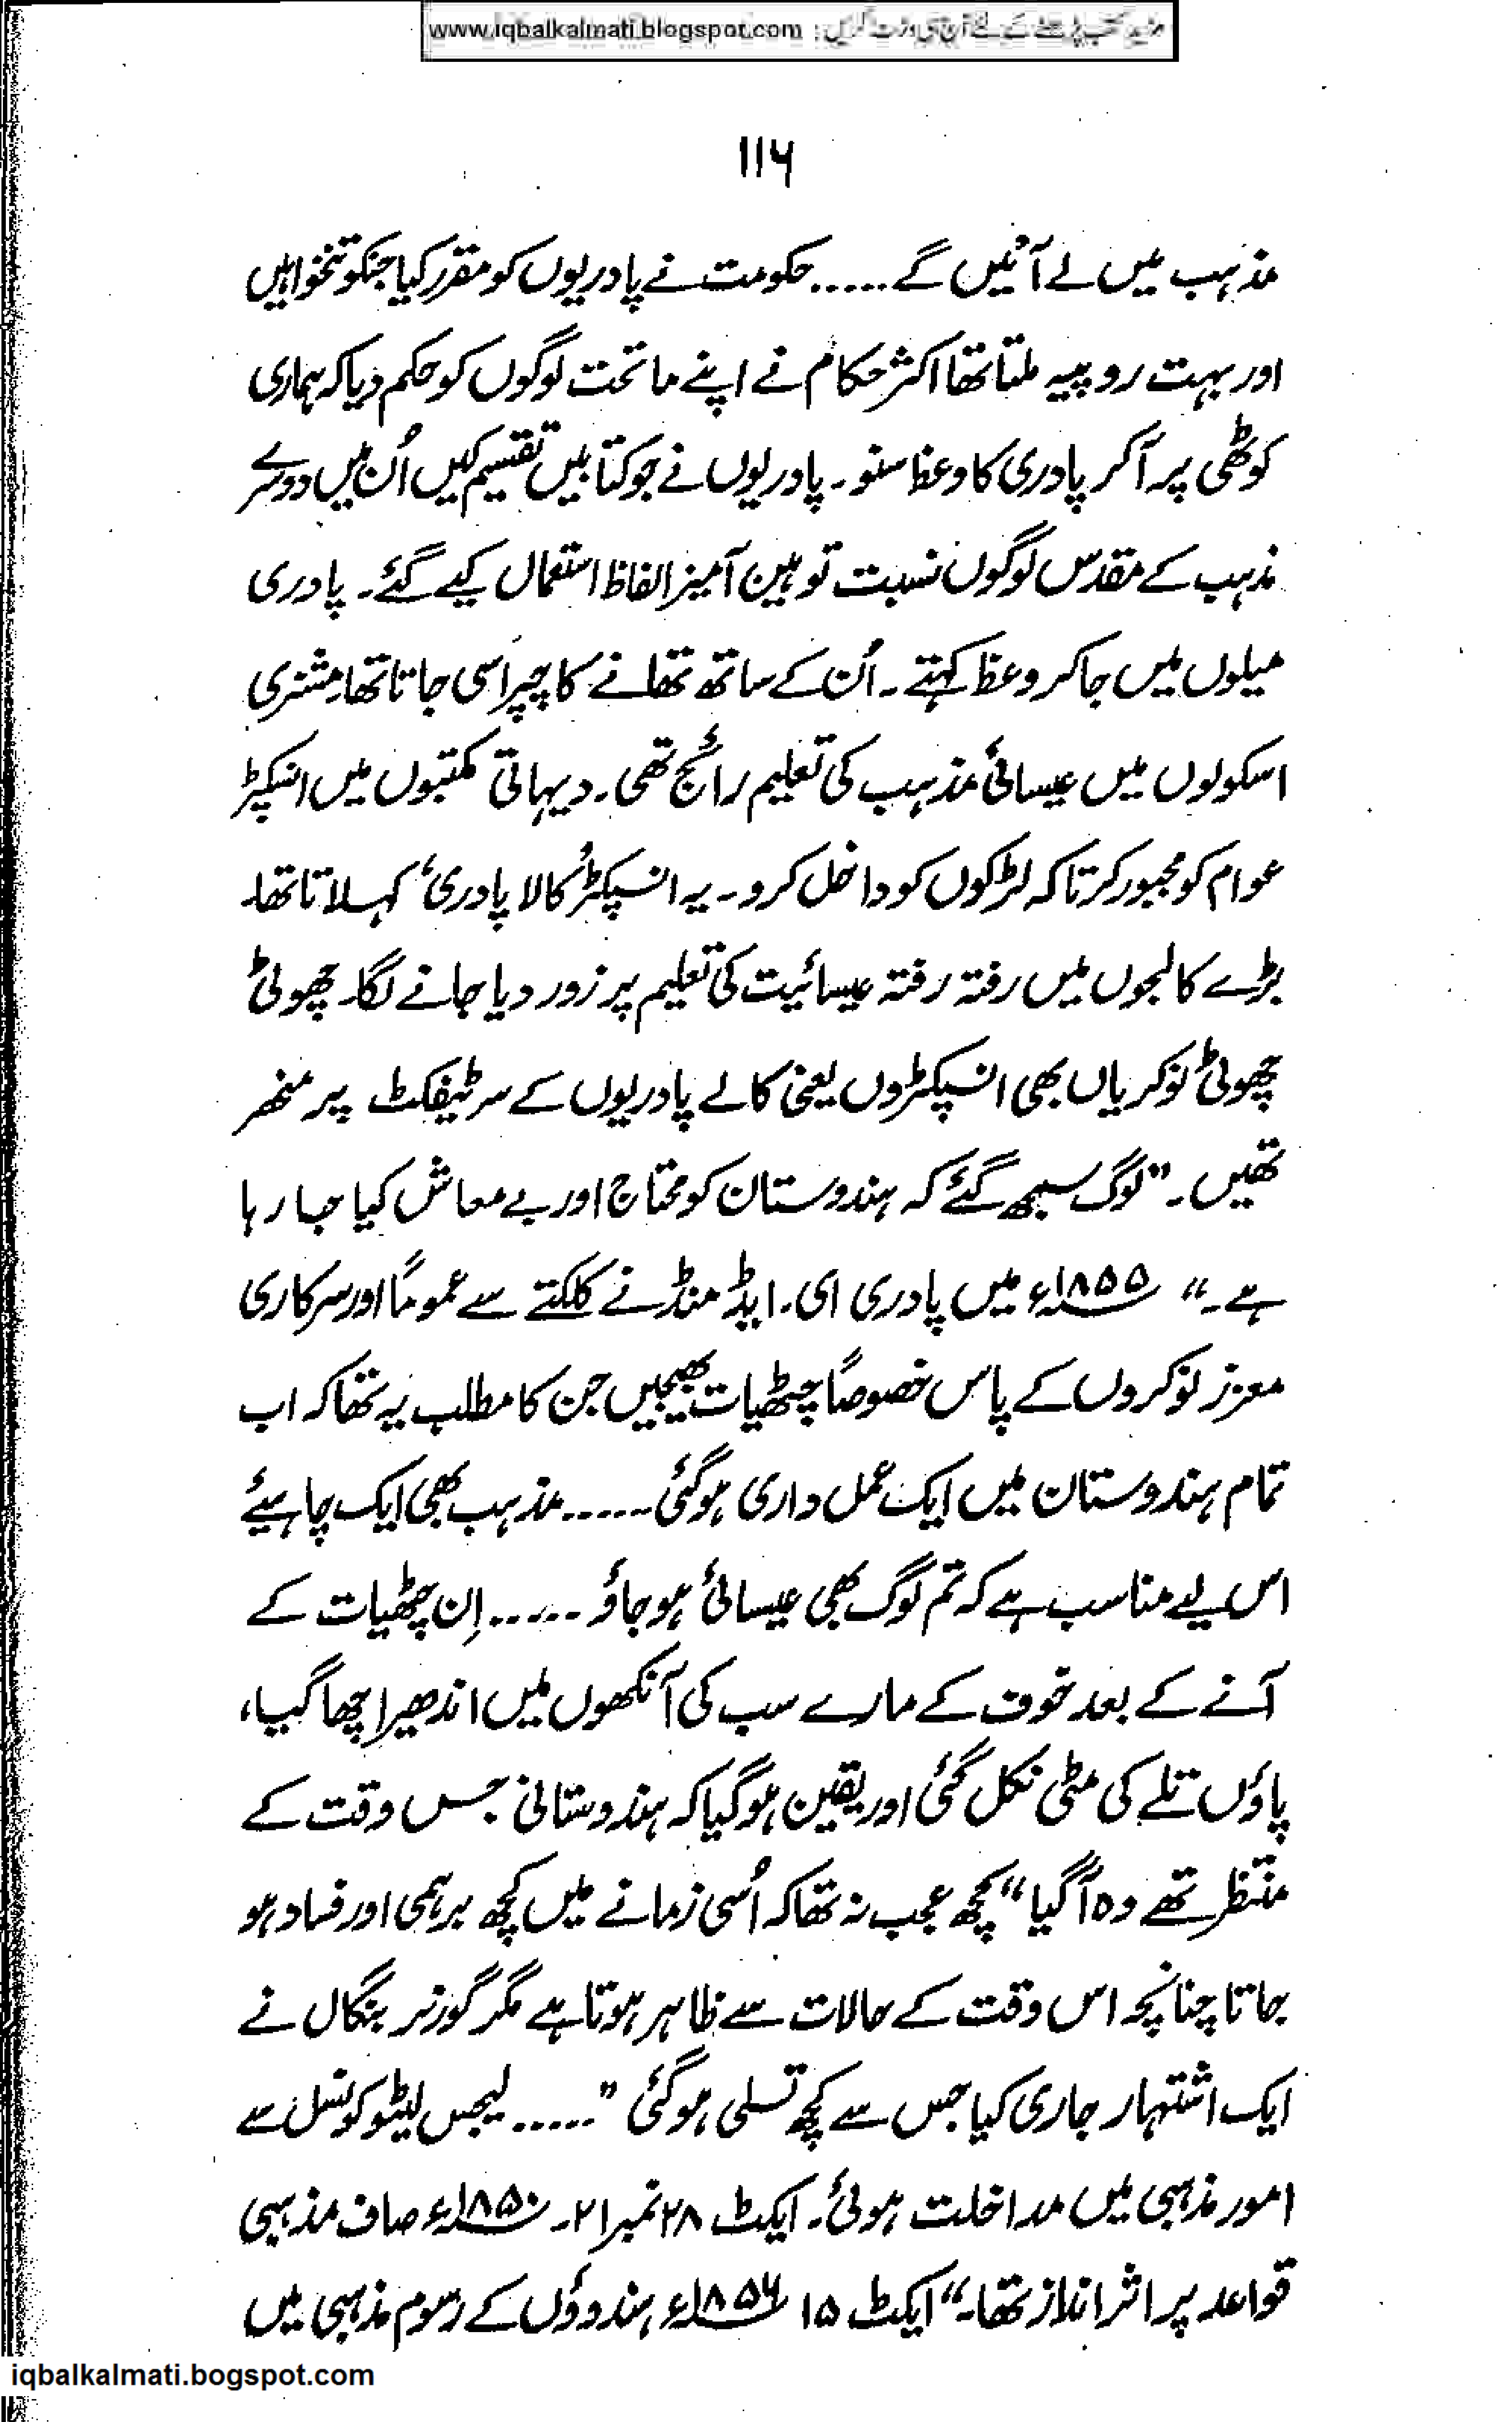 مزید کتب پڑھنے کے لئے آج ہی وزٹ کریں : www.iqbalkalmati.blogspot.com
۱۱۶
مذہب میں لے آئیں گے ..... حکومت نے پادریوں کو مقرر کیا جنکو تنخواہیں
اور بہت روپیہ ملتا تھا اکثر حکام نے اپنے ماتحت لوگوں کو حکم دیا کہ ہماری
کوٹھی پر آکر پادری کا وعظ سنو۔ پادریوں نے جو کتابیں تقسیم کیں اُن میں دوسرے
مذہب کے مقدس لوگوں نسبت توہین آمیز الفاظ استعمال کیے گئے۔ پادری
میلوں میں جاکر وعظ کہتے۔ اُن کے ساتھ تھانے کا چپراسی جاتا تھا۔ مشنری
اسکولوں میں عیسائی مذہب کی تعلیم رائج تھی۔ دیہاتی مکتبوں میں انسپکٹر
عوام کو مجبور کرتا کہ لڑکوں کو داخل کرو۔ یہ انسپکٹر ’کالا پادری‘ کہلاتا تھا۔
بڑے کالجوں میں رفتہ رفتہ عیسائیت کی تعلیم پر زور دیا جانے لگا۔ چھوٹی
چھوٹی نوکریاں بھی انسپکٹروں یعنی کالے پادریوں کے سرٹیفکٹ پر منحصر
تھیں۔ ”لوگ سمجھ گئے کہ ہندوستان کو محتاج اور بے معاش کیا جا رہا
ہے۔“ ۱۸۵۵ء میں پادری ای۔ ایڈمنڈ نے کلکتے سے عموماً اور سرکاری
معزز نوکروں کے پاس خصوصاً چٹھیات بھیجیں جن کا مطلب یہ تھا کہ اب
تمام ہندوستان میں ایک عمل داری ہوگئی ..... مذہب بھی ایک چاہیئے
اس لیے مناسب ہے کہ تم لوگ بھی عیسائی ہو جاؤ ..... اِن چٹھیات کے
آنے کے بعد خوف کے مارے سب کی آنکھوں میں اندھیرا چھا گیا،
پاؤں تلے کی مٹی نکل گئی اور یقین ہو گیا کہ ہندوستانی جس وقت کے
منتظر تھے وہ آگیا“ کچھ عجب نہ تھا کہ اُسی زمانے میں کچھ برہمی اور فساد ہو
جاتا چنانچہ اس وقت کے حالات سے ظاہر ہوتا ہے مگر گورنر بنگال نے
ایک اشتہار جاری کیا جس سے کچھ تسلی ہوگئی ” ..... لیجس لیٹو کونسل سے
امور مذہبی میں مداخلت ہوئی۔ ایکٹ ۲۸ نمبر ۲۱۔ ۱۸۵۰ء صاف مذہبی
قواعد پر اثر انداز تھا۔“ ایکٹ ۱۵ ۱۸۵۶ء ہندوؤں کے رسوم مذہبی میں
iqbalkalmati.bogspot.com